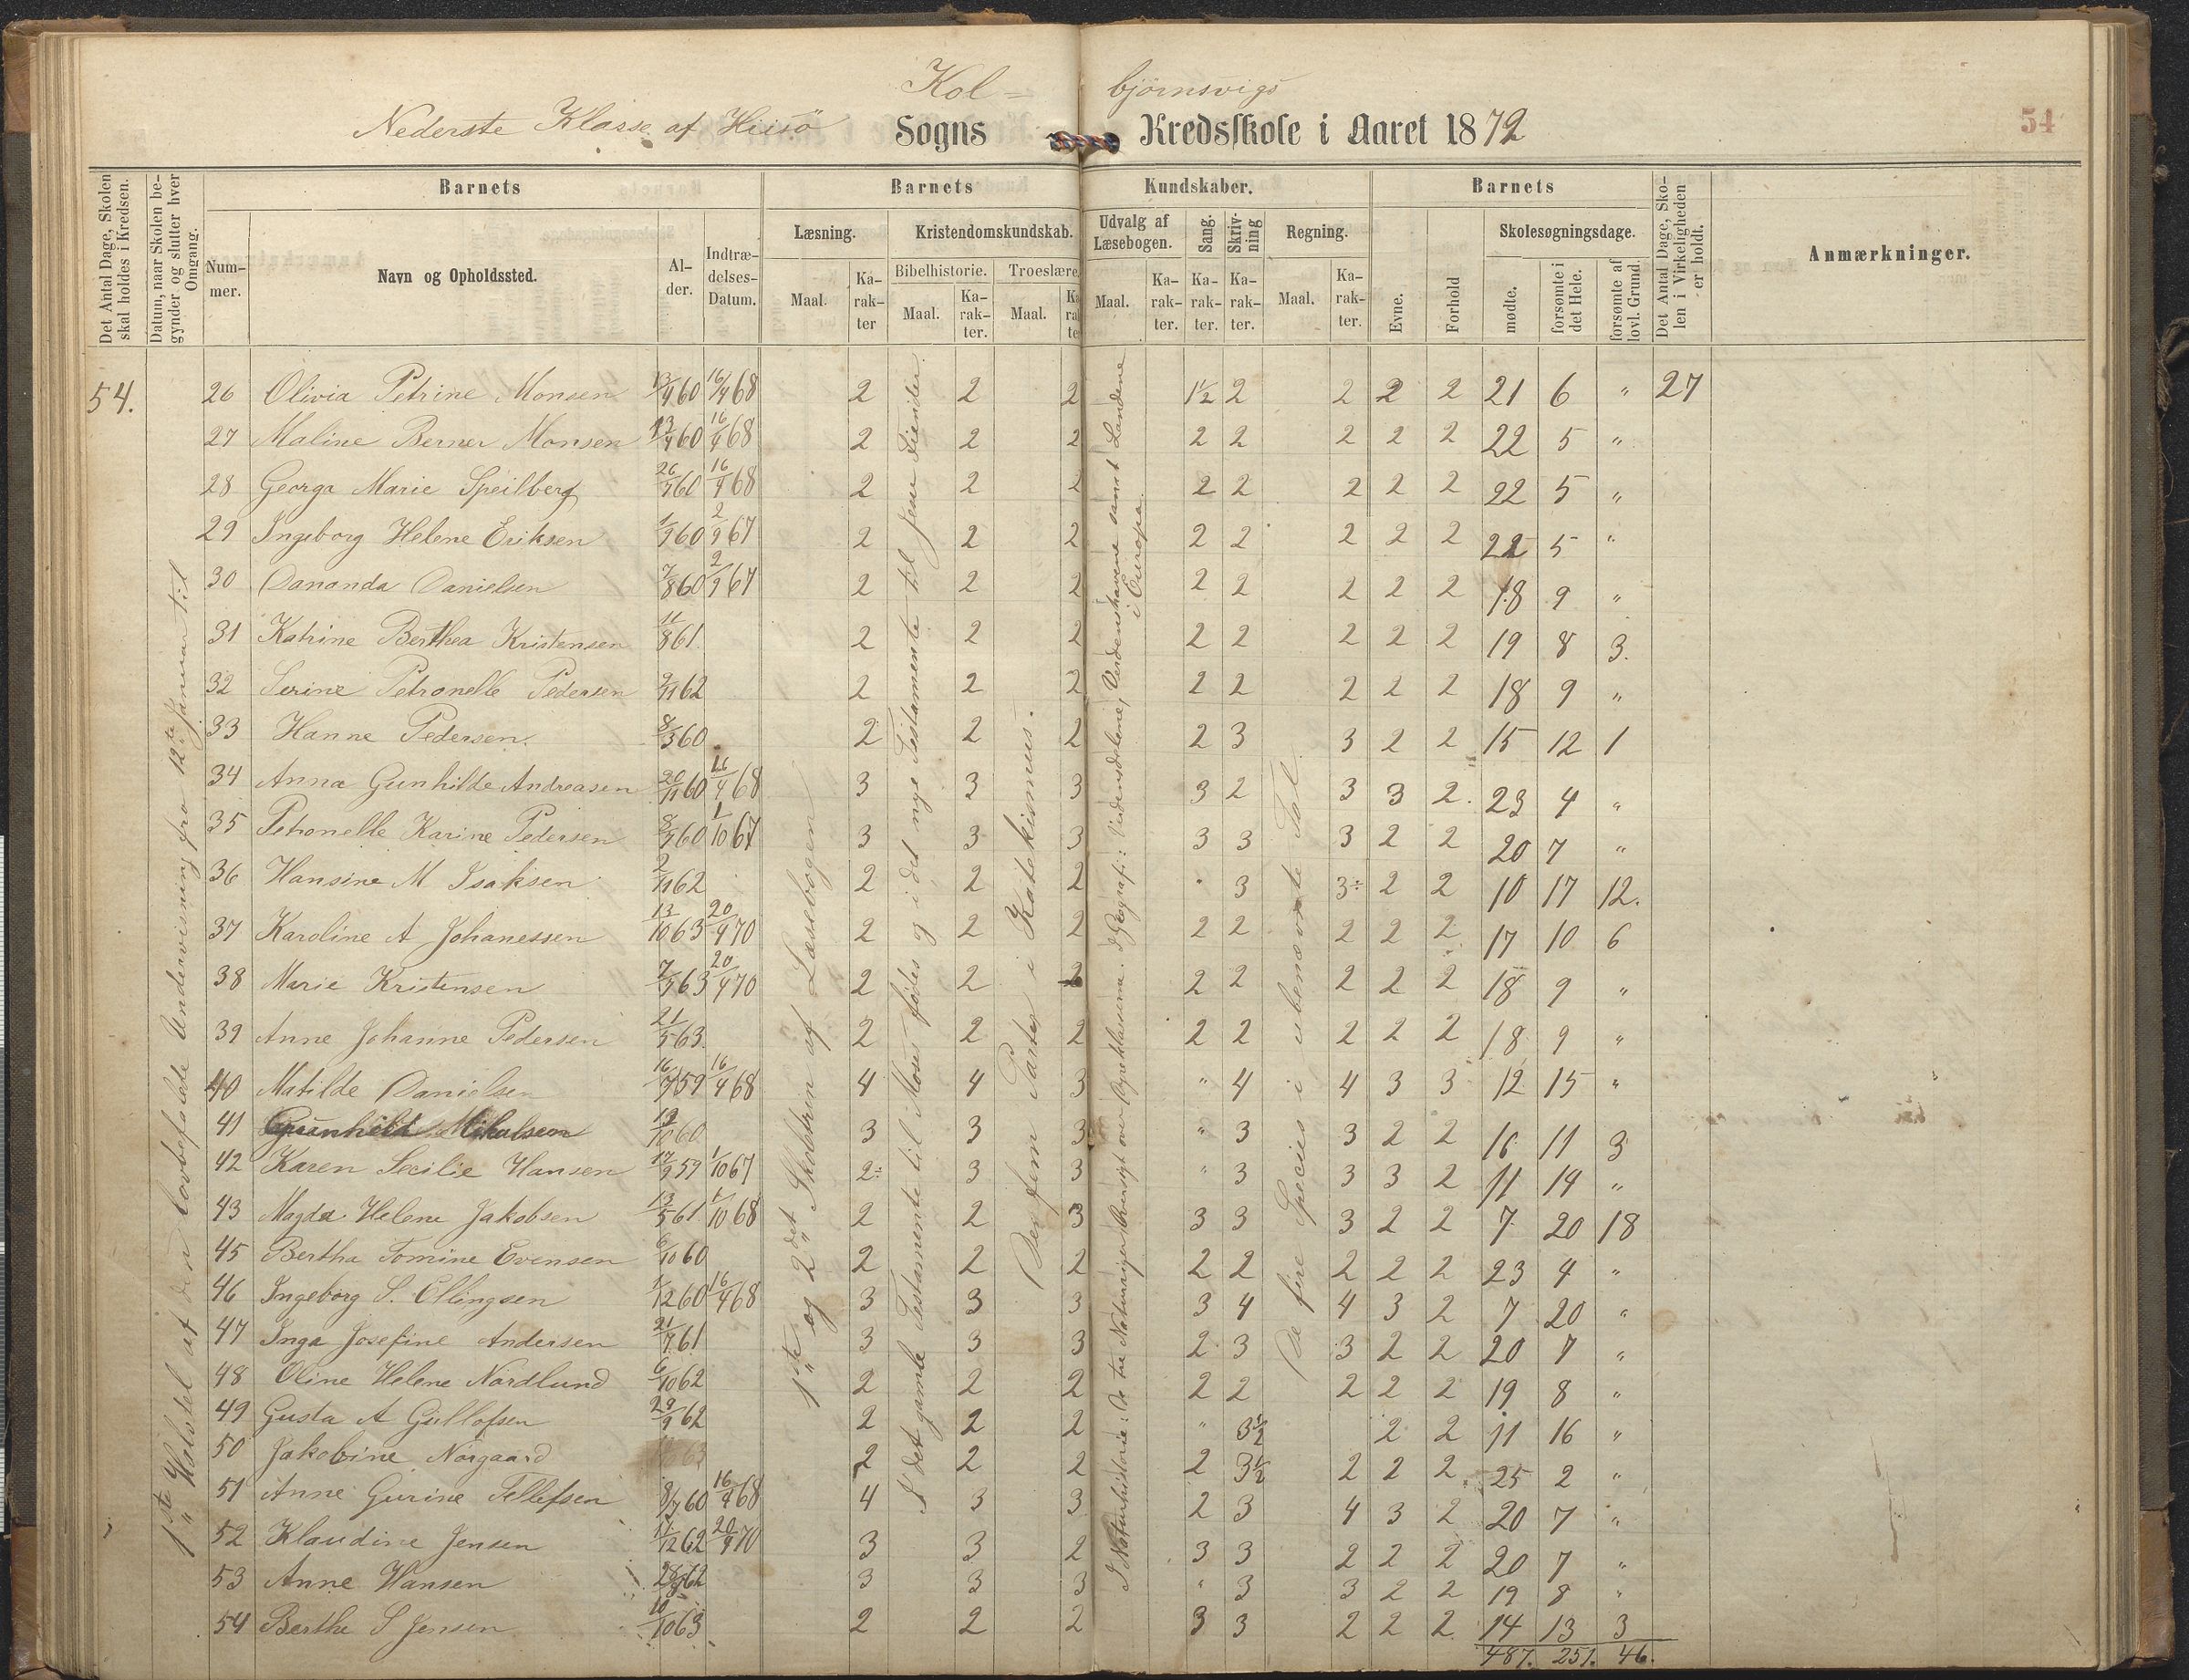 Kol= bjørnsvigs
Nederste Klasse af Hiisö Sogns Kredsskole i Aaret 1872
54
Det Antal Dage, Skolen skal holdes i Kredsen.
Datum, naar Skolen begynder og slutter hver Omgang.
Barnets
Barnets
Kundskaber.
Barnets
Det Antal Dage, Skolen i Virkeligheden er holdt.
Anmærkninger.
Nummer.
Navn og Opholdssted.
Alder.
Indtrædelses-Datum.
Læsning.
Kristendomskundskab.
Udvalg af Læsebogen.
Sang.
Skrivning
Regning.
Evne.
Forhold
Skolesøgningsdage.
Maal.
Karakter
Bibelhistorie.
Troeslære.
Maal.
Karakter.
Maal.
Maal.
Karakter.
Karakter.
Karakter.
Maal.
Karakter.
mødte.
forsømte i det Hele.
forsømte af lovl. Grund.
54.
1ste Halvdel af den lovbefalede Undervisning fra 12te Januar til
1ste og 2det Skoletrin af Læsebogen
I det gamle Testamente til Moses fødes og i det nye Testamente til Jesu Fiender
De fem Parter i Katekismus.
I Naturhistorie: De tre Naturriger, Oversigt over Dyreklasserne. I Geografi: Verdensdelene, Verdenshavene samt Landene i Europa.
De fire Species i ubenævnte Tal
26 Olivia Petrine Monsen 13/9 60 16/4 68 2 2 2 1½ 2 2 2 2 21 6 " 27
27 Maline Berner Monsen 13/9 60 16/4 68 2 2 2 2 2 2 2 2 22 5 "
28 Georga Marie Speilberg 26/9 60 16/4 68 2 2 2 2 2 2 2 2 22 5 "
29 Ingeborg Helene Eriksen 1/9 60 2/9 67 2 2 2 2 2 2 2 2 22 5 "
30 Dananda Danielsen 7/8 60 2/9 67 2 2 2 2 2 2 2 2 18 9 "
31 Katrine Berthea Kristensen 11/8 61 2 2 2 2 2 2 2 2 19 8 3.
32 Serine Petronelle Pedersen 9/11 62 2 2 2 2 2 2 2 2 18 9 "
33 Hanne Pedersen. 8/3 60 2 2 2 2 3 3 2 2 15 12 1
34 Anna Gunhilde Andreasen 20/11 60 16/4 68 3 3 3 3 2 3 3 2. 23 4 "
35 Petronelle Karine Pedersen 8/9 60 1/10 67 3 3 3 3 3 3 2 2 20 7 "
36 Hansine M Isaksen 2/11 62 2 2 2 " 3 3÷ 2 2 10 17 12.
37 Karoline A Johanessen 13/10 63 20/9 70 2 2 2 2 2 2 2 2 17 10 6
38 Marie Kristensen 7/5 63 20/9 70 2 2 2 2 2 2 2 2 18 9 "
39 Anne Johanne Pedersen 21/5 63. 2 2 2 2 2 2 2 2 18 9 "
40 Matilde Danielsen 16/7 59 16/4 68 4 4 3 " 4 4 3 3 12 15 "
41 Gunhild Mikalsen 19/10 60 3 3 3 " 3 3 2 2 16 11 3
42 Karen Secilie Hansen 17/9 59 1/10 67 2÷ 3 3 " 3 3 3 2 11 14 "
43 Magda Helene Jakobsen 13/5 61 1/10 68 2 2 3 3 3 3 2 2 7 20 18
45 Bertha Tomine Evensen 6/10 60 2 2 2 2 2 2 2 2 23 4 "
46 Ingeborg S. Ellingsen 1/12 60 16/4 68 3 3 3 3 4 4 3 2 7 20 "
47 Inga Josefine Andersen 21/7 61 3 3 3 2 3 3 2 2 20 7 "
48 Oline Helene Nordlund 6/10 62 2 2 2 2 2 2 2 2 19 8 "
49 Gusta A Gullofsen 29/9 62 2 2 2 " 3½ 2 2 11 16 "
50 Jakobine Norgaard 63 2 2 2 2 3½ 2 2 2 25 2 "
51 Anne Gurine Tellefsen 8/7 60 16/4 68 4 3 3 2 3 4 3 2 20 7 "
52 Klaudine Jensen 11/12 62 20/9 70 3 3 2 3 3 2 2 2 20 7 "
53 Anne Hansen 62 3 3 3 " 3 3 2 2 19 8 "
54 Berthe S Jensen 10/10 63 2 2 2 3 3 2 2 2 14 13 3
487. 251. 46.